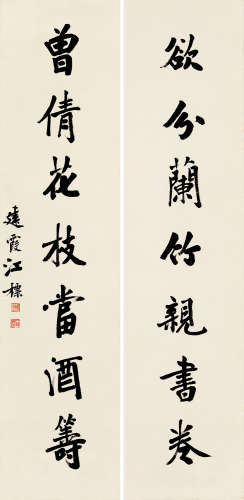 欲分蘭竹親書卷
曾倩花枝當酒籌
建霞江標